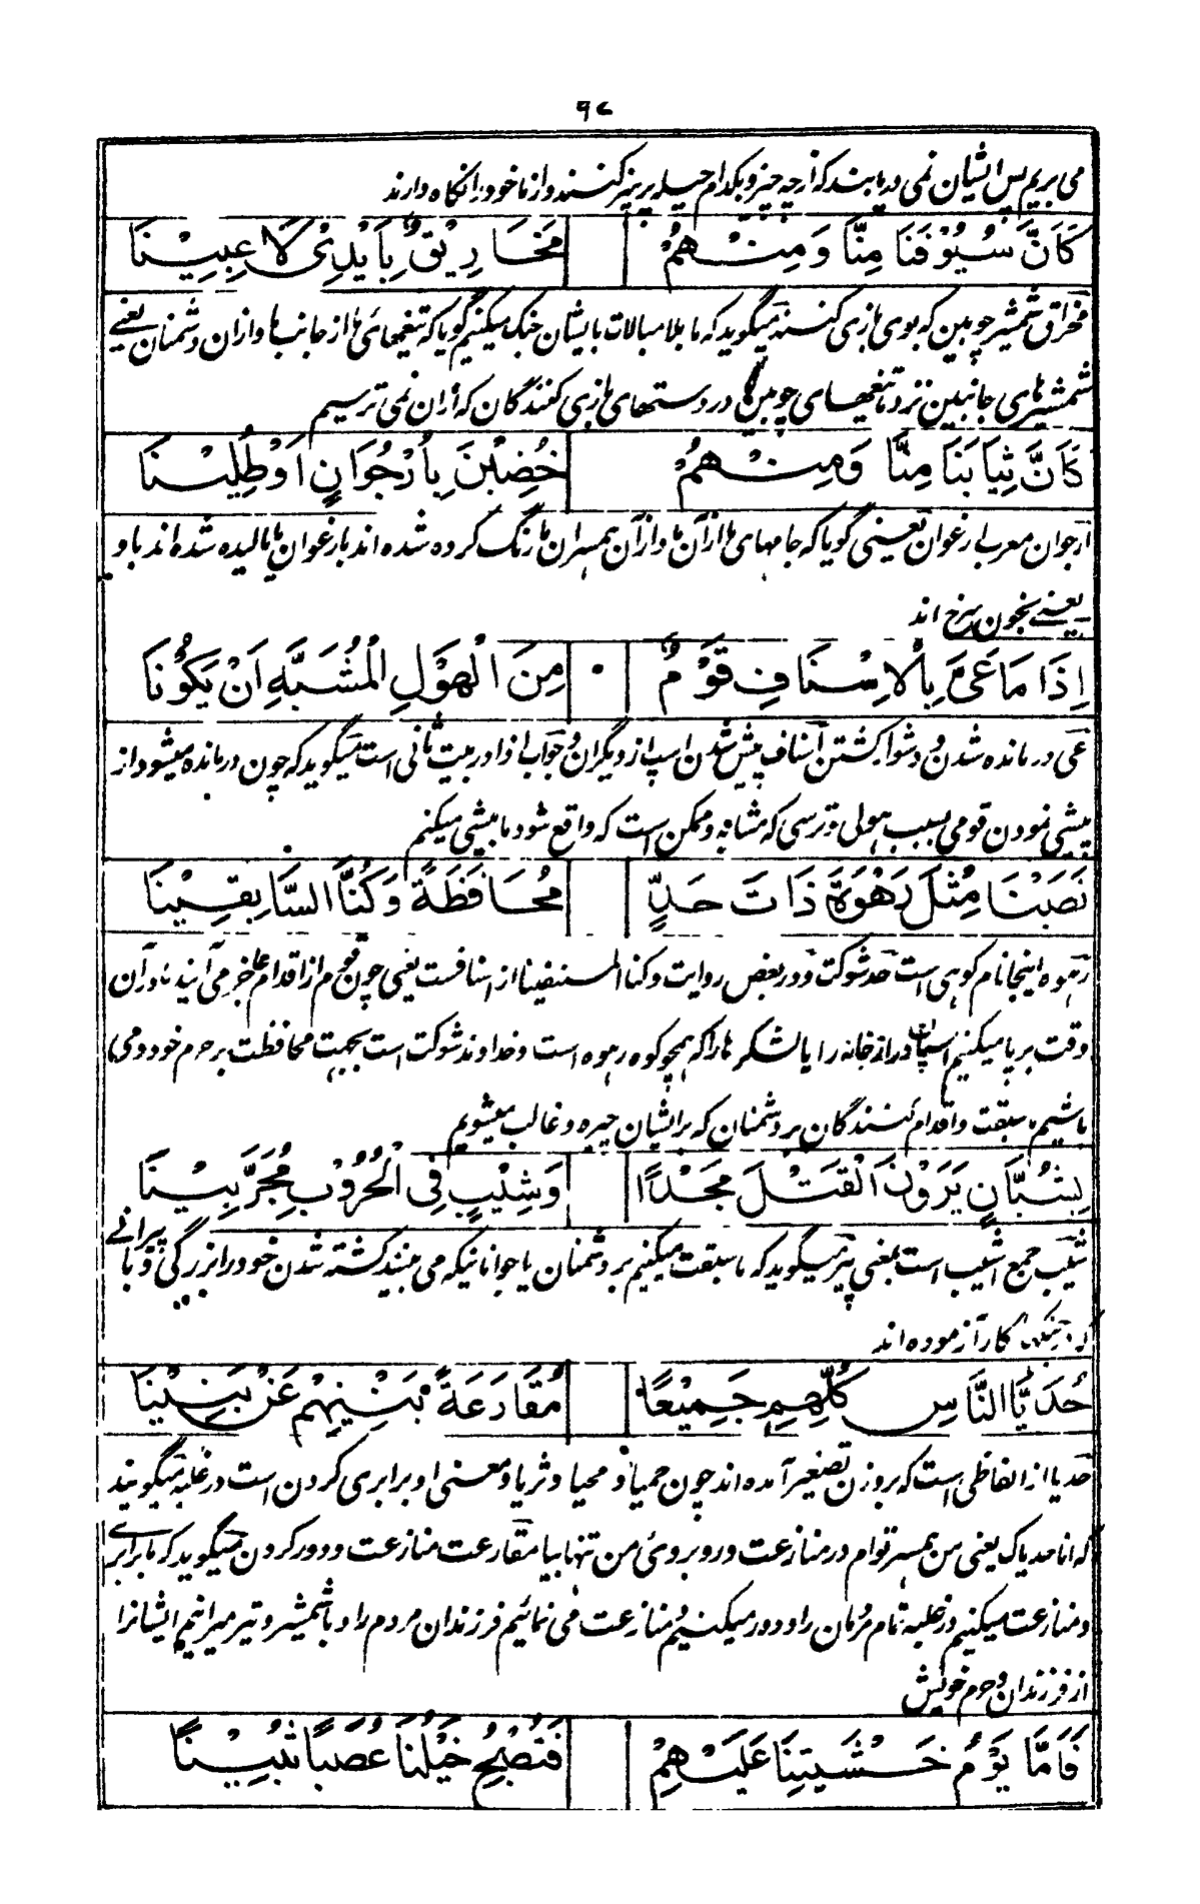 ٩٤
می بریم پس ایشان نمی دریابند که از چه چیز و بکدام حیله پرهیز کنند و از ما خود را نگاه دارند
كَاَنَّ سُيُوْفَنَا مِنَّا وَمِنْهُمْ مَخَارِيْقٌ بِاَيْدِىْ لَاعِبِيْنَا
مخراق شمشیر چوبین که بوی بازی کنند میگوید که ما بلا مبالات بایشان جنگ میکنیم گویا که تیغهائی ما از جانب ما و ازان دشمنان یعنے
شمشیرهای جانبین نزد ما تیغهای چوبین اند در دستهای بازی کنندگان که ازان نمی ترسیم
كَاَنَّ ثِيَابَنَا مِنَّا وَمِنْهُمْ خُضِبْنَ بِاُرْجُوَانٍ اَوْطُلِيْنَا
ارجوان معرب ارغوان یعنی گویا که جامهای ما ازآن ما و ازآن همسران ما رنگ کرده شده اند بارغوان یا مالیده شده اند باو
یعنے بخون سرخ اند
اِذَا مَا عَىَّ بِالْاِسْنَافِ قَوْمٌ مِنَ الْهَوْلِ الْمُشَبَّهِ اَنْ يَكُوْنَا
عی در مانده شدن و دشوار گشتن اسناف پیش شدن اسپ از دیگران و جواب اذا در بیت ثانی است میگوید که چون درمانده میشود از
پیشی نمودن قومی بسبب هولی و ترسی که مشابه و ممکن است که واقع شود ما پیشی میکنیم
نَصَبْنَا مِثْلَ رَهْوَةَ ذَاتَ حَدٍّ مُحَافَظَةً وَكُنَّا السَّابِقِيْنَا
رهوه اینجا نام کوهی است حد شوکت و در بعض روایت وکنا المسنفینا از اسنافست یعنی چون قوم از اقدام عاجز می آیند ما در آن
وقت برپا میکنیم اسپان دراز خانه را یا لشکر ما را که همچو کوه رهوه است و خداوند شوکت است بجهت محافظت بر حرم خود و می
باشیم سبقت و اقدام کنندگان بر دشمنان که بر ایشان چیره و غالب میشویم
بِشُبَّانٍ يَرَوْنَ الْقَتْلَ مَجْدًا وَشِيْبٍ فِى الْحُرُوْبِ مُجَرَّبِيْنَا
شیب جمع اشیب است بمعنی پیر میگوید که ما سبقت میکنیم بر دشمنان با جوانانیکه می بینند کشته شدن خود را بزرگی و با پیرانے
که جنگها کار آزموده اند
حُدَيَّا النَّاسِ كُلِّهِمِ جَمِيْعًا مُقَارَعَةً بَنِيْهِمْ عَنْ بَنِيْنَا
حدیا از الفاظی است که بروزن تصغیر آمده اند چون حمیا و محیا و ثریا و معنی او برابری کردن است در غلبه میگویند
که انا حدیاک یعنی من همسر توام در منازعت و روبروئی من تنها بیا مقارعت منازعت و دور کردن میگوید که ما برابرے
و منازعت میکنیم در غلبه تمام مردمان را و دور میکنیم و منازعت می نمائیم فرزندان مردم را و با شمشیر و تیر میرانیم ایشانرا
از فرزندان و حرم خویش
فَاَمَّا يَوْمَ خَشْيَتِنَا عَلَيْهِمْ فَتُصْبِحُ خَيْلُنَا عُصَبًا ثُبِيْنَا